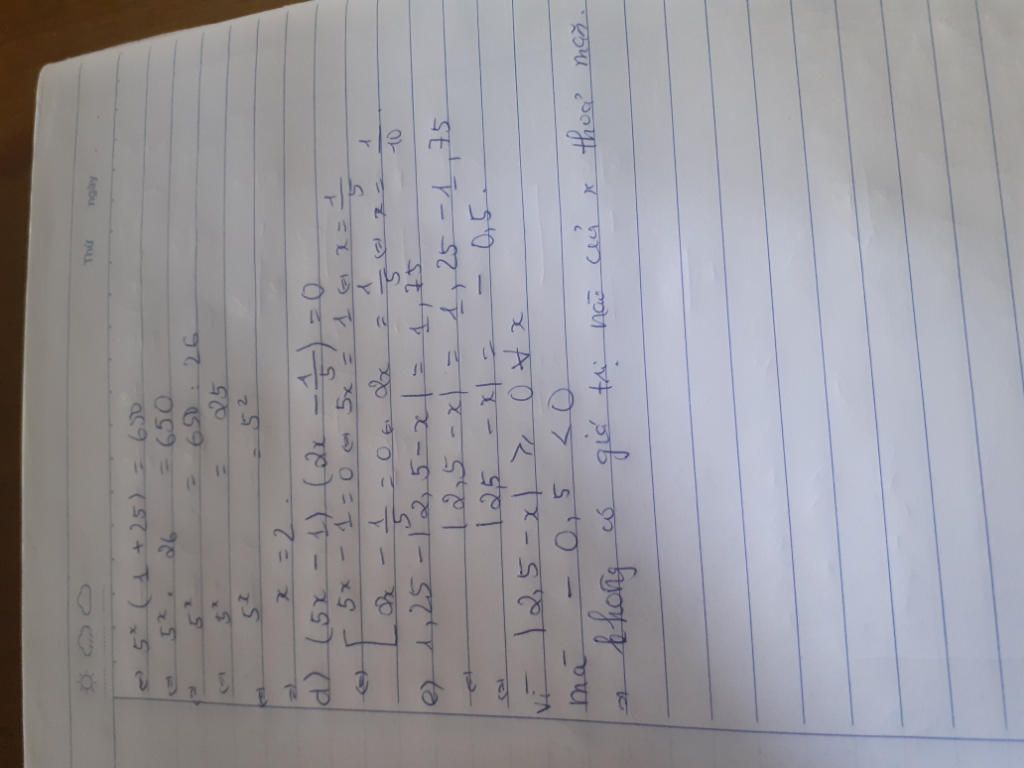 Thứ ngày
⇔ 5ˣ (1 + 25) = 650
⇔ 5ˣ . 26 = 650
⇔ 5ˣ = 650 : 26
⇔ 5ˣ = 25
⇔ 5ˣ = 5²
⇒ x = 2.
d) (5x - 1) (2x - 1/5) = 0
⇔ [ 5x - 1 = 0 ⇔ 5x = 1 ⇔ x = 1/5
2x - 1/5 = 0 ⇔ 2x = 1/5 ⇔ x = 1/10
e) 1,25 - |2,5 - x| = 1,75
⇔ |2,5 - x| = 1,25 - 1,75
⇔ |2,5 - x| = - 0,5.
Vì |2,5 - x| ≥ 0 ∀ x
mà - 0,5 < 0
⇒ không có giá trị nào của x thoả mãn.